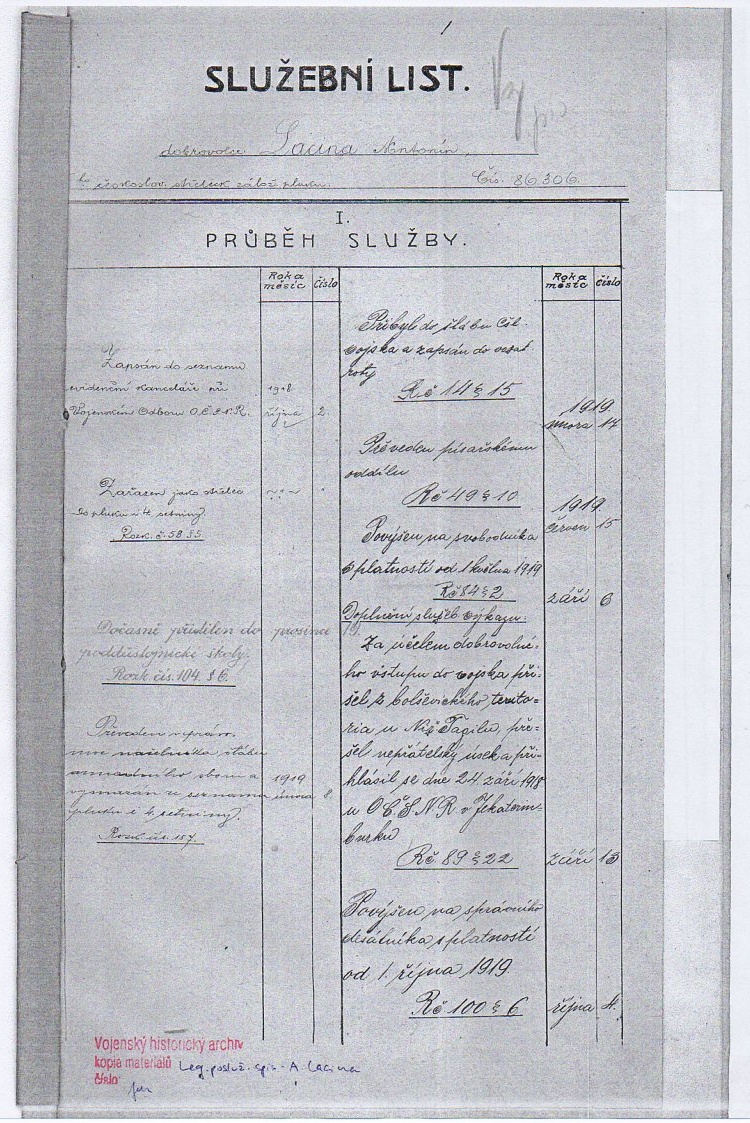 SLUŽEBNÍ LIST.
dobrovolce Lacina Antonín,
českoslov. střeleck. zálož. pluku. Čís. 86306.
I.
PRŮBĚH SLUŽBY.
Rok a měsíc
Číslo
Zapsán do seznamu
evidenční kanceláře při 1918
Vojenském Odboru O.Č.S.N.R. října 2.
Zařazen jako střelec
do pluku 4. setniny
Rozk. č. 58 § 5.
Dočasně přidělen do prosince 19.
poddůstojnické školy.
Rozk. čís. 104. § 6.
Převeden
náčelníka štábu
sboru a 1919
ze seznamu února 8.
pluku i 4. setniny.
Rozk. čís. 157.
Rok a měsíc
číslo
Přibyl do štábu Čsl.
vojska a zapsán do
roty
Rč 14 § 15
1919
února 17
Převeden písařskému
oddílu
Rč 49 § 10
1919
červen 15
Povýšen na svobodníka
s platností od 1 května 1919
Rč 84 § 2
září 6
Doplnění služeb. výkazu:
Za účelem dobrovolné-
ho vstupu do vojska při-
šel z bolševického terito-
ria u Niž. Tagilu, pře-
šel nepřátelský úsek a při-
hlásil se dne 24 září 1918
u OČSNR v Jekaterin-
burku
Rč 89 § 22
září 13
Povýšen na správního
desátníka s platností
od 1. října 1919
Rč 100 § 6
října 4.
Vojenský historický archiv
kopia materiálů Leg. posluž. spis - A Lacina
číslo